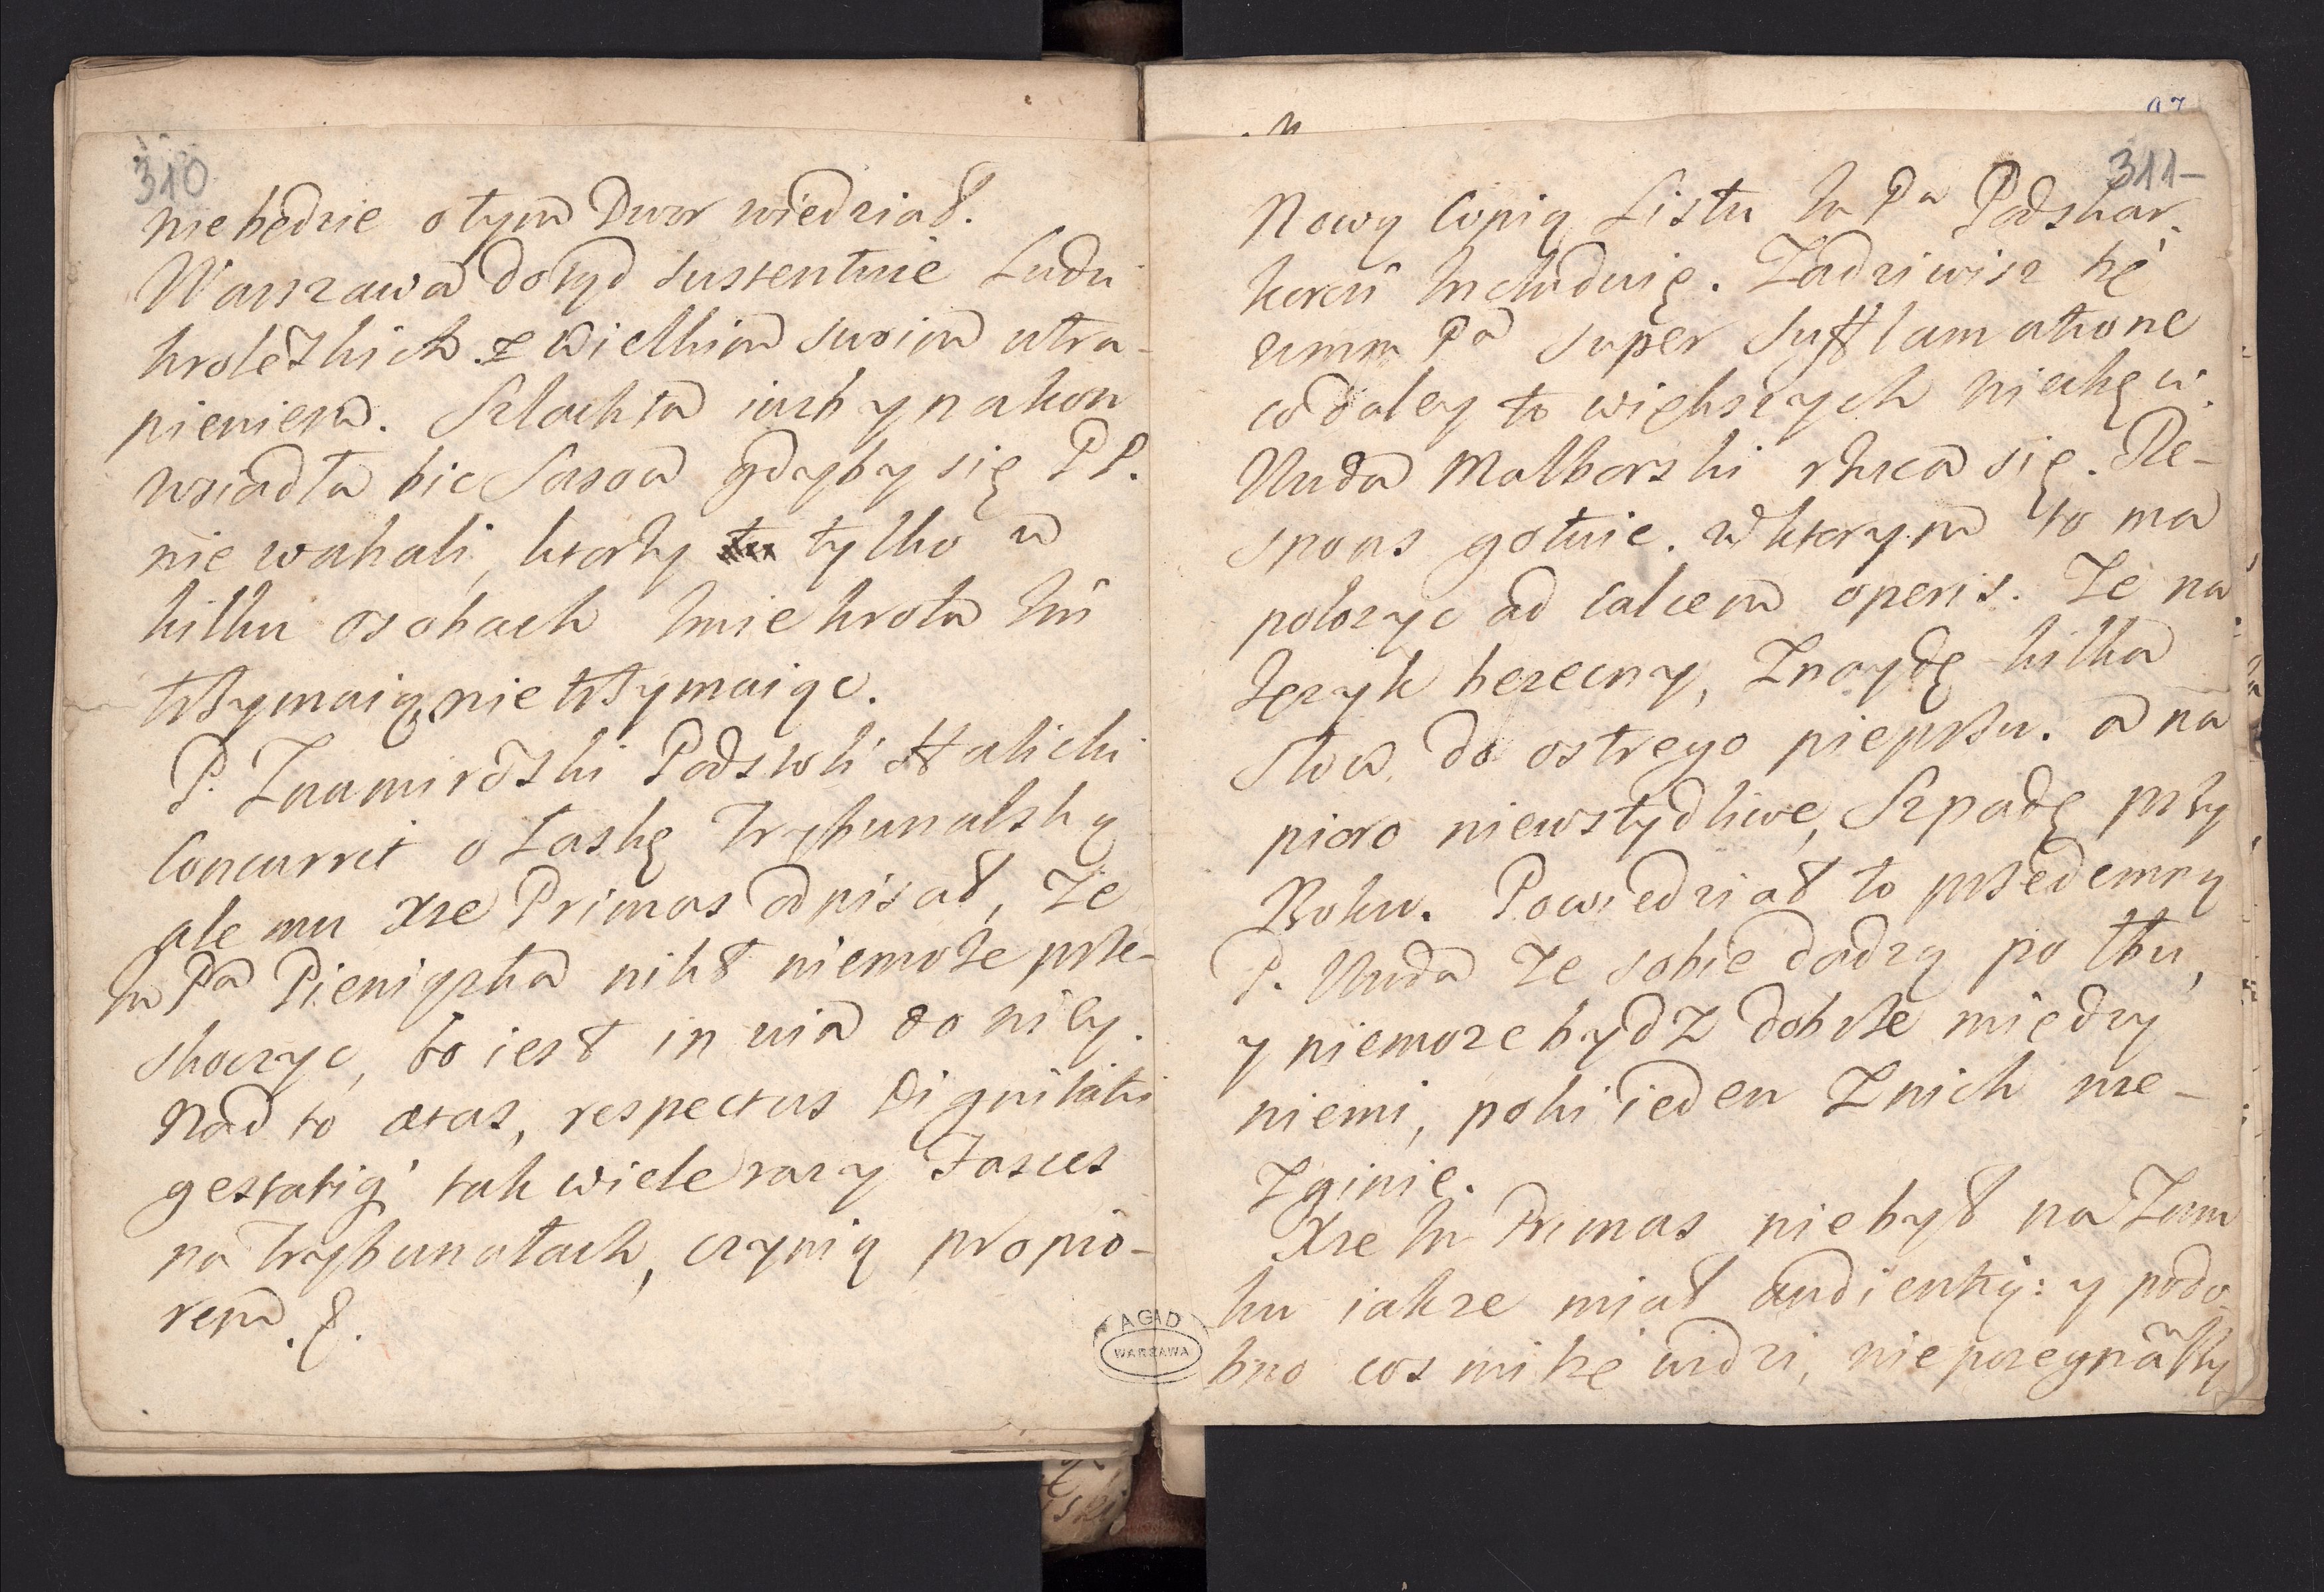 310
nie będzie o tym Dwor wiedział.
Warszawa dotyd sustentuie Ludzi
krolewskich z wielkim swoim utra-
pieniem. Szlachta iuzby na kon
wsiadła bic Sasow gdyby się PP.
nie wahali, ktorzy tylko w
kilku osobach Imie krola Im
trzymaią, nie trzymaiąc.
P. Znamirowski Podstoli Halicki
Concurrit o Laskę Trybunalską
ale mu Xże Primas odpisał, że
Im Pa Pieniązka nikt niemoże prze-
skoczyc, bo iest in via do niey.
Nad to ætas, respectus Dignitatis
gestatiq tak wiele razy Fasces
na Trybunałach, czynią propio-
rem. &.
311
Nową Copią Listu Im Pa Podskar-
biego Includuię. Zadziwisz się
Pa super Sufflamatione
co daley to większych niechęci.
Nuda Malborski rzuca się. Re-
spons gotuie. w ktorym to ma
położyc ad calcem operis. Ze na
Język bezecny, Znaydę kilka
słow do ostrego pieprzu. a na
pioro niewstydliwe, Szpadę przy
Boku. Powiedział to przedemną
P. Nuda ze sobie dadzą po łbu,
y niemoze bydz dobrze między
niemi, poki ieden Znich nie-
Zginie.
Xże Im Primas niebył na Zam
ku iakze miał audientią: y podo
bno cos mi się widzi, nie pozegnawszy
AGAD
WARSZAWA